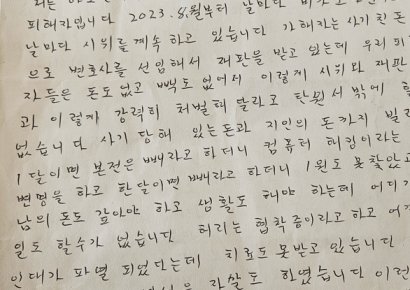 피해자입니다 2023.8.월부터 날마다
날마다 시위를 계속 하고 있습니다 가해자는 사기 친 돈
으로 변호사를 선임해서 재판을 받고 있는데 우리 피
자들은 돈도 없고 빽도 없어서 이렇게 시위와 재판
과 이렇게 강력히 처벌해 달라고 탄원서 밖에
없습니다 사기 당해 있는돈과 지인의 돈까지 빌
1달이면 본전은 빼라고 하더니 컴퓨터 해킹이라는
변명을 하고 한달이면 빼라고 하더니 1원도 못찾았고
남의 돈도 갚아야 하고 생활도 해야 하는데 어디
일도 할수가 없습니다 허리는 협착증이라고 하고 어
인대가 파열 피었다는데 치료도 못받고 있습니다
자살도 하였습니다 이런